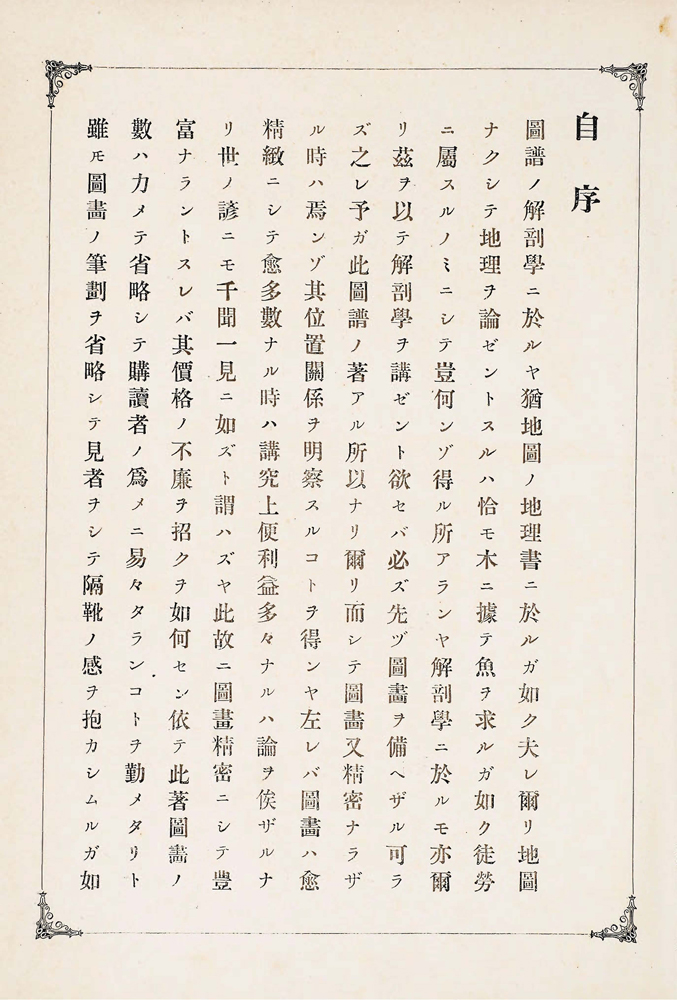 自序
圖譜ノ解剖學ニ於ルヤ猶地圖ノ地理書ニ於ルガ如ク夫レ爾リ地圖
ナクシテ地理ヲ論ゼントスルハ恰モ木ニ據テ魚ヲ求ルガ如ク徒勞
ニ屬スルノミニシテ豈何ンゾ得ル所アランヤ解剖學ニ於ルモ亦爾
リ茲ヲ以テ解剖學ヲ講ゼント欲セバ必ズ先ヅ圖畵ヲ備ヘザル可ラ
ズ之レ予ガ此圖譜ノ著アル所以ナリ爾リ而シテ圖畵又精密ナラザ
ル時ハ焉ンゾ其位置關係ヲ明察スルコトヲ得ンヤ左レバ圖畵ハ愈
精緻ニシテ愈多數ナル時ハ講究上便利益多々ナルハ論ヲ俟ザルナ
リ世ノ諺ニモ千聞一見ニ如ズト謂ハズヤ此故ニ圖畫精密ニシテ豊
富ナラントスレバ其價格ノ不廉ヲ招クヲ如何セン依テ此著圖畵ノ
數ハ力メテ省略シテ購讀者ノ爲メニ易々タランコトヲ勤メタリト
雖モ圖畵ノ筆劃ヲ省略シテ見者ヲシテ隔靴ノ感ヲ抱カシムルガ如